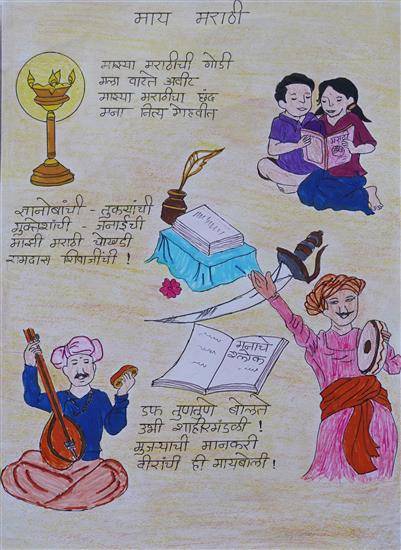 माय मराठी
माझ्या मराठीची गोडी
मला वाटते अवीट
माझ्या मराठीचा छंद
मना नित्य मोहवीत
ज्ञानोबांची - तुकयांची
मुक्तेशांची - जनाईची
माझी मराठी चोखडी
रामदास शिवाजींची !
मराठी
मनाचे
श्लोक
डफ तुणतुणे बोलते
उभी शाहीरमंडळी !
मुजऱ्याची मानकरी
वीरांची ही मायबोली !